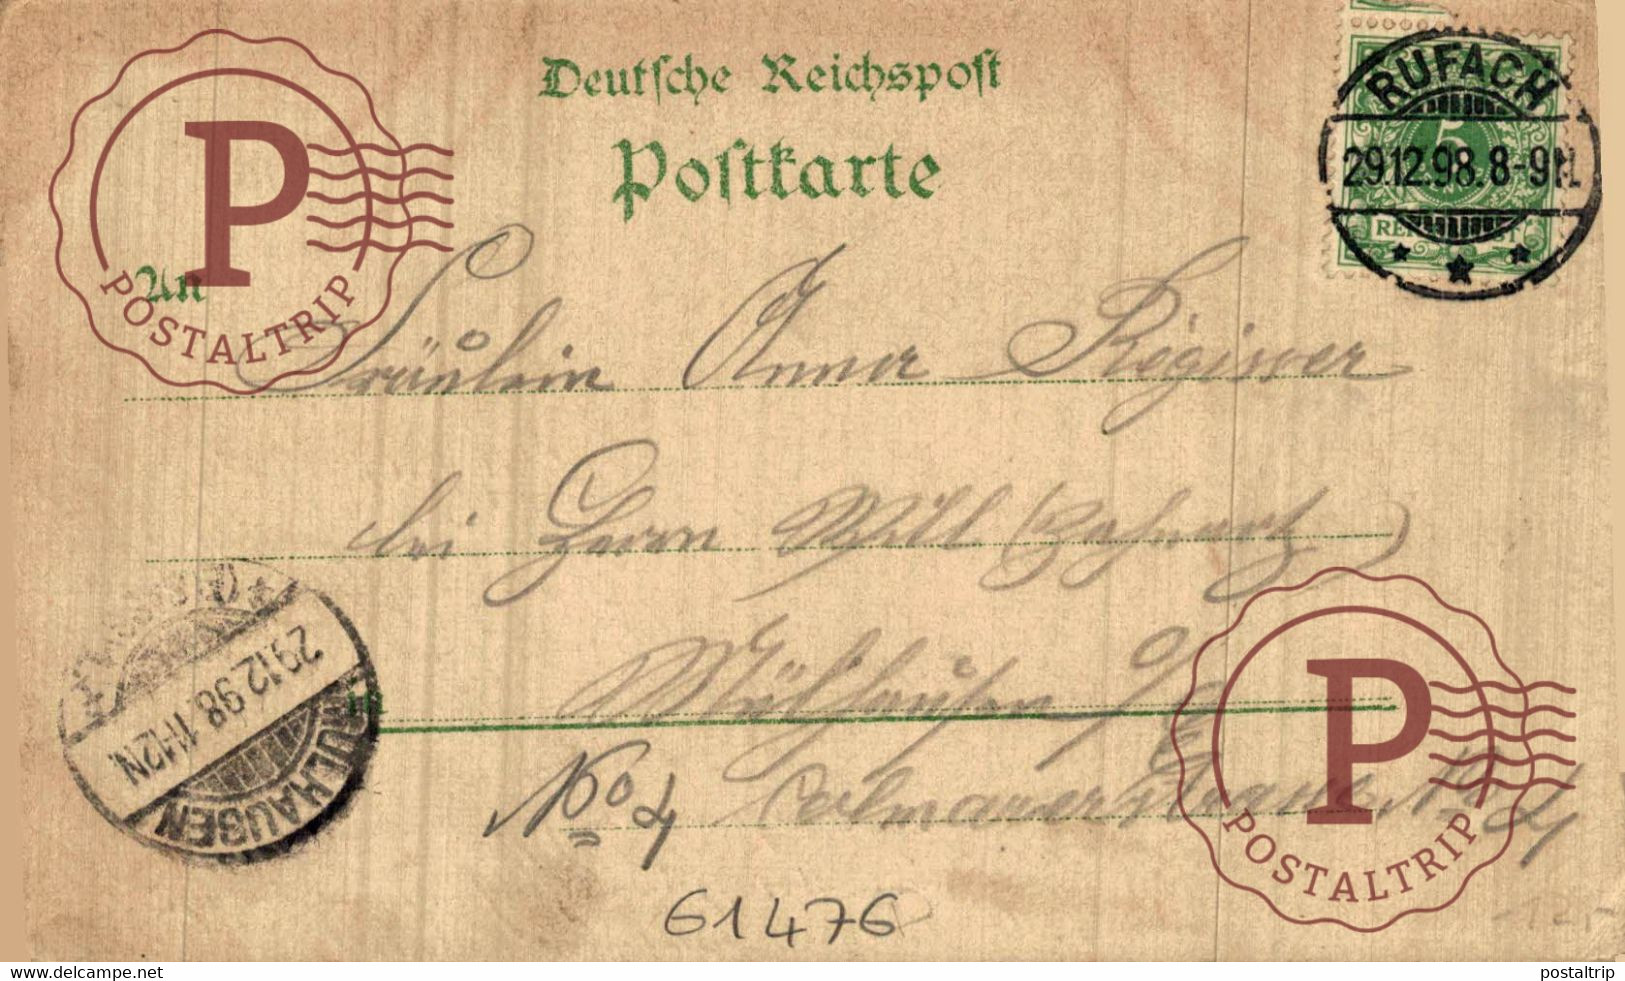 Deutsche Reichspost
Postkarte
RUFACH
29.12.98. 8-9N.
5
An
Fräulein Anna
bei Herrn Will (Bahnarzt)
in
Mülhausen i/E
No 4 Colmarerstrasse No 4
MÜLHAUSEN
29.12.98.11-12N.
(ELSASS)
61476
P
POSTALTRIP
P
POSTALTRIP
www.delcampe.net
postaltrip